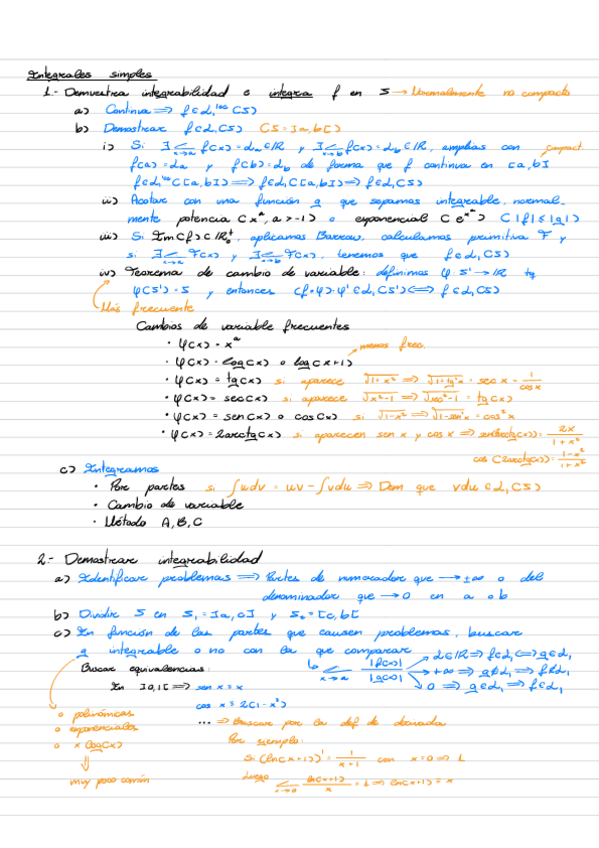 Integrales simples
1.- Demuestra integrabilidad e integra f en S → Normalmente no compacto
a) Continua ⟹ f∈L₁ˡᵒᶜ(S)
b) Demostrar f∈L₁(S) (S=]a,b[)
i) Si ∃ lim x→a f(x)=αₐ∈ℝ y ∃ lim x→b f(x)=α_b∈ℝ, amplias con compact.
f(a)=αₐ y f(b)=α_b de forma que f continua en [a,b]
f∈L₁ˡᵒᶜ([a,b]) ⟹ f∈L₁([a,b]) ⟹ f∈L₁(S)
ii) Acotar con una función g que sepamos integrable, normal-
mente potencia (xᵅ, α>-1) o exponencial (eᵅˣ) (|f|≤|g|)
iii) Si Im(f)⊂ℝ₀⁺, aplicamos Barrow, calculamos primitiva F y
si ∃ lim x→a F(x) y ∃ lim x→b F(x), tenemos que f∈L₁(S)
iv) Teorema de cambio de variable: definimos φ:S'→ℝ tq
φ(S')=S y entonces (f∘φ)·φ'∈L₁(S') ⟺ f∈L₁(S)
Más frecuente
Cambios de variable frecuentes
· φ(x)=xᵅ
· φ(x)=log(x) o log(x+1) menos frec.
· φ(x)=tg(x) si aparece √(1+x²) ⟹ √(1+tg²x) = sec x = 1/cos x
· φ(x)=sec(x) si aparece √(x²-1) ⟹ √(sec²-1) = tg(x)
· φ(x)=sen(x) o cos(x) si √(1-x²) ⟹ √(1-sen²x) = cos²x
· φ(x)=2arctg(x) si aparecen sen x y cos x ⟹ sen(2arctg(x))= 2x/(1+x²)
cos(2arctg(x))= (1-x²)/(1+x²)
c) Integramos
· Por partes si ∫udv = uv - ∫vdu ⟹ Dem que vdu∈L₁(S)
· Cambio de variable
· Método A,B,C
2.- Demostrar integrabilidad
a) Identificar problemas ⟹ Partes de numerador que → ±∞ o del
denominador que → 0 en a o b
b) Dividir S en S₁=]a,c] y S₂=[c,b[
c) En función de las partes que causen problemas, buscar
g integrable o no con la que comparar
lim x→a |f(x)|/|g(x)|
α∈ℝ ⟹ f∈L₁ ⟺ g∈L₁
+∞ ⟹ g∉L₁ ⟹ f∉L₁
0 ⟹ g∈L₁ ⟹ f∈L₁
Buscar equivalencias:
En ]0,1[ ⟹ sen x ≈ x
cos x ≈ 2(1-x²)
... ⟹ Buscar por la def de derivada
o polinómicas
o exponenciales
o x log(x)
⇓
muy poco común
Por ejemplo:
Si (ln(x+1))' = 1/(x+1) con x=0 ⟹ 1
Luego lim x→0 ln(x+1)/x = 1 ⟹ ln(x+1) ≈ x